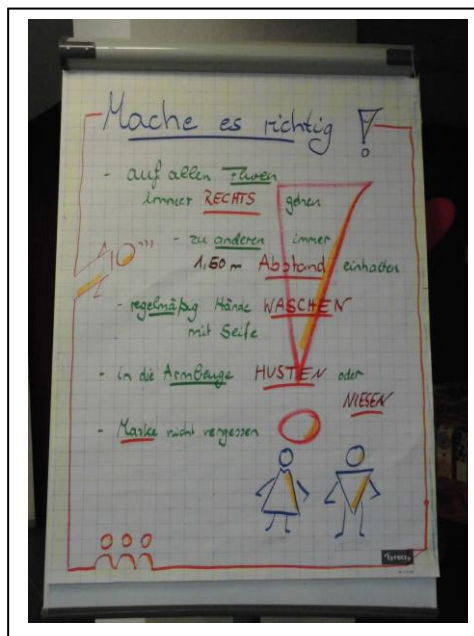 Mache es richtig !
- auf allen Fluren
immer RECHTS gehen
- zu anderen immer
1,50 m Abstand einhalten
- regelmäßig Hände WASCHEN
mit Seife
- in die Armbeuge HUSTEN oder
NIESEN
- Maske nicht vergessen